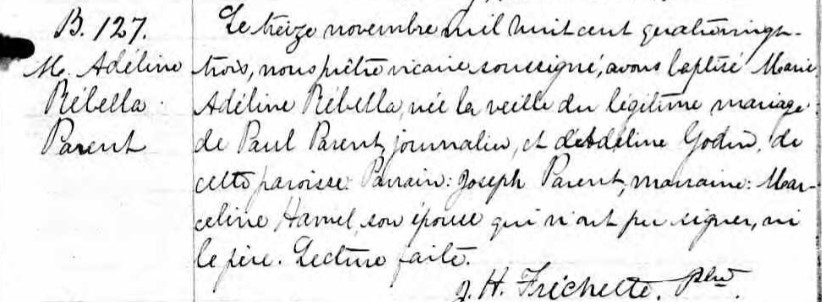 B. 127.
M. Adéline
Rébella
Parent
Le treize novembre mil huit cent quatrevingt-
trois, nous prêtre vicaire soussigné, avons baptisé Marie
Adéline Rébella, née la veille du légitime mariage
de Paul Parent, journalier, et d'Adéline Godin, de
cette paroisse. Parrain: Joseph Parent, marraine: Mar-
celine Hamel, son épouse qui n'ont pu signer, ni
le père. Lecture faite.
J. H. Fréchette. ptre